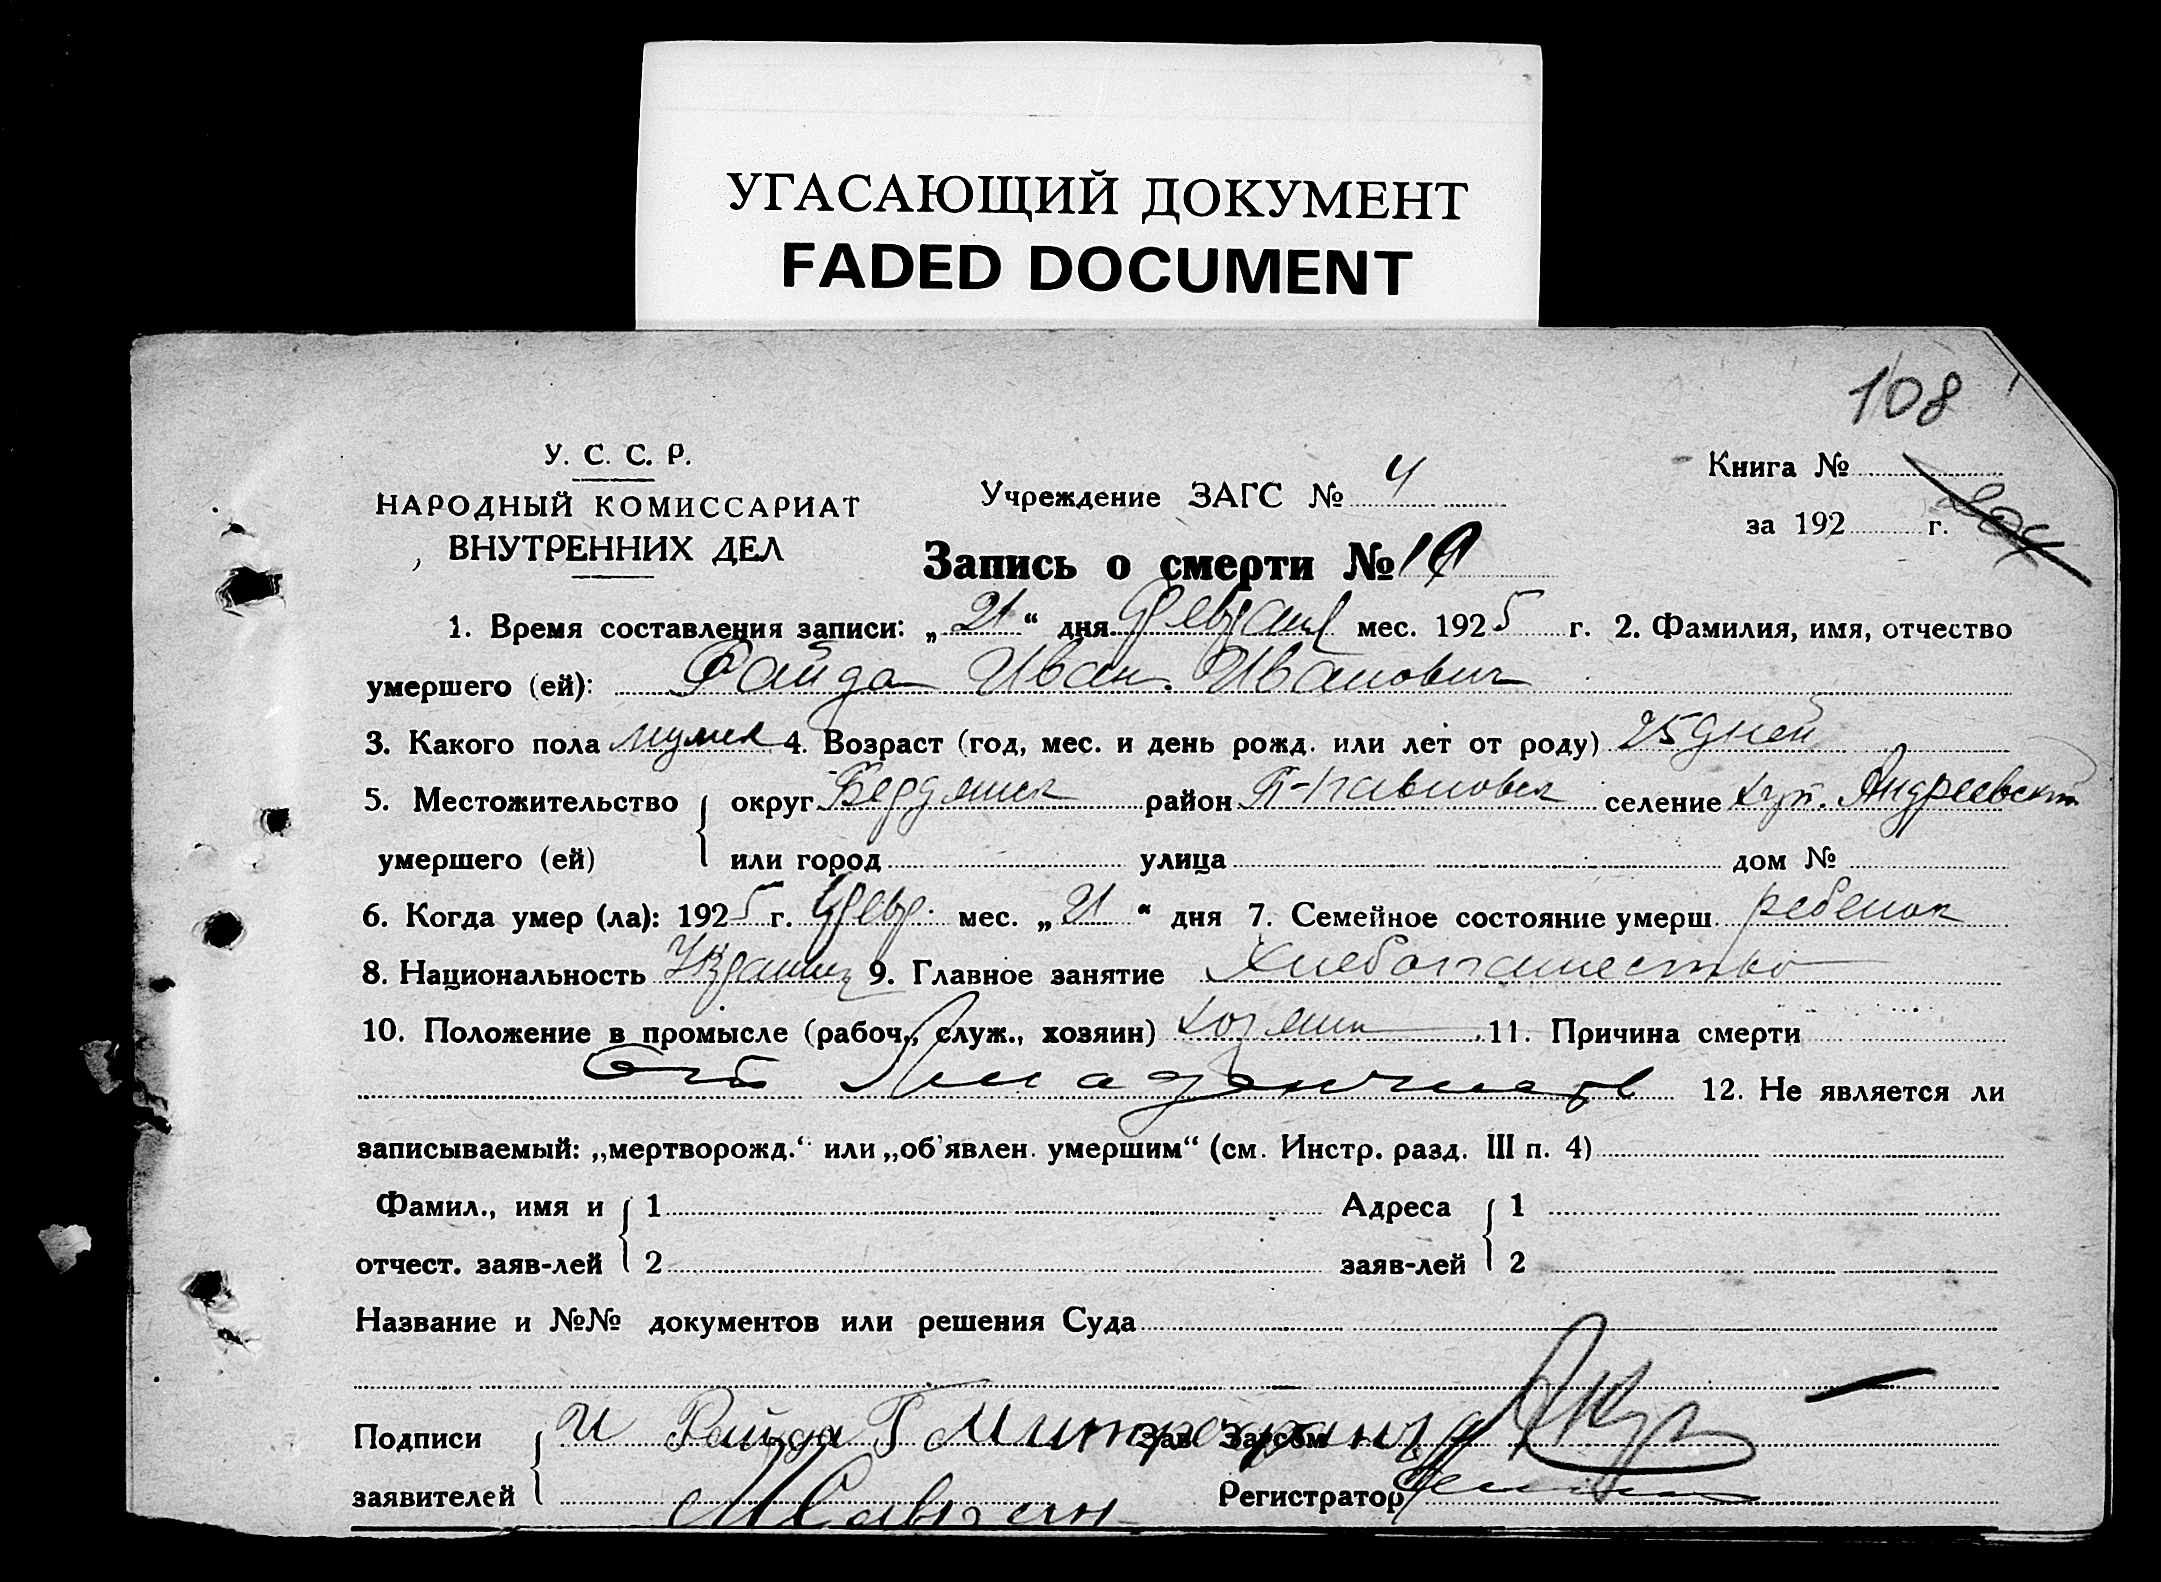 УГАСАЮЩИЙ ДОКУМЕНТ
FADED DOCUMENT
108
У. С. С. Р.
НАРОДНЫЙ КОМИССАРИАТ
ВНУТРЕННИХ ДЕЛ
Учреждение ЗАГС № 4
Книга №
за 192 г.
Запись о смерти №
1. Время составления записи: „21“ дня февраля мес. 1925 г. 2. Фамилия, имя, отчество
умершего (ей): Файда Иван Иванович
3. Какого пола мужск 4. Возраст (год, мес. и день рожд. или лет от роду) 25 дней
5. Местожительство округ Бердянск район П-павловск селение хут. Андреевский
умершего (ей) или город улица дом №
6. Когда умер (ла): 1925 г. февр. мес. „21“ дня 7. Семейное состояние умерш. ребенок
8. Национальность 9. Главное занятие Хлебопашество
10. Положение в промысле (рабоч., служ., хозяин) хозяин 11. Причина смерти
От 12. Не является ли
записываемый: „мертворожд.“ или „об'явлен. умершим“ (см. Инстр. разд. III п. 4)
Фамил., имя и 1 Адреса 1
отчест. заяв-лей 2 заяв-лей 2
Название и №№ документов или решения Суда
Подписи И Файда Зав Загсом
заявителей Регистратор